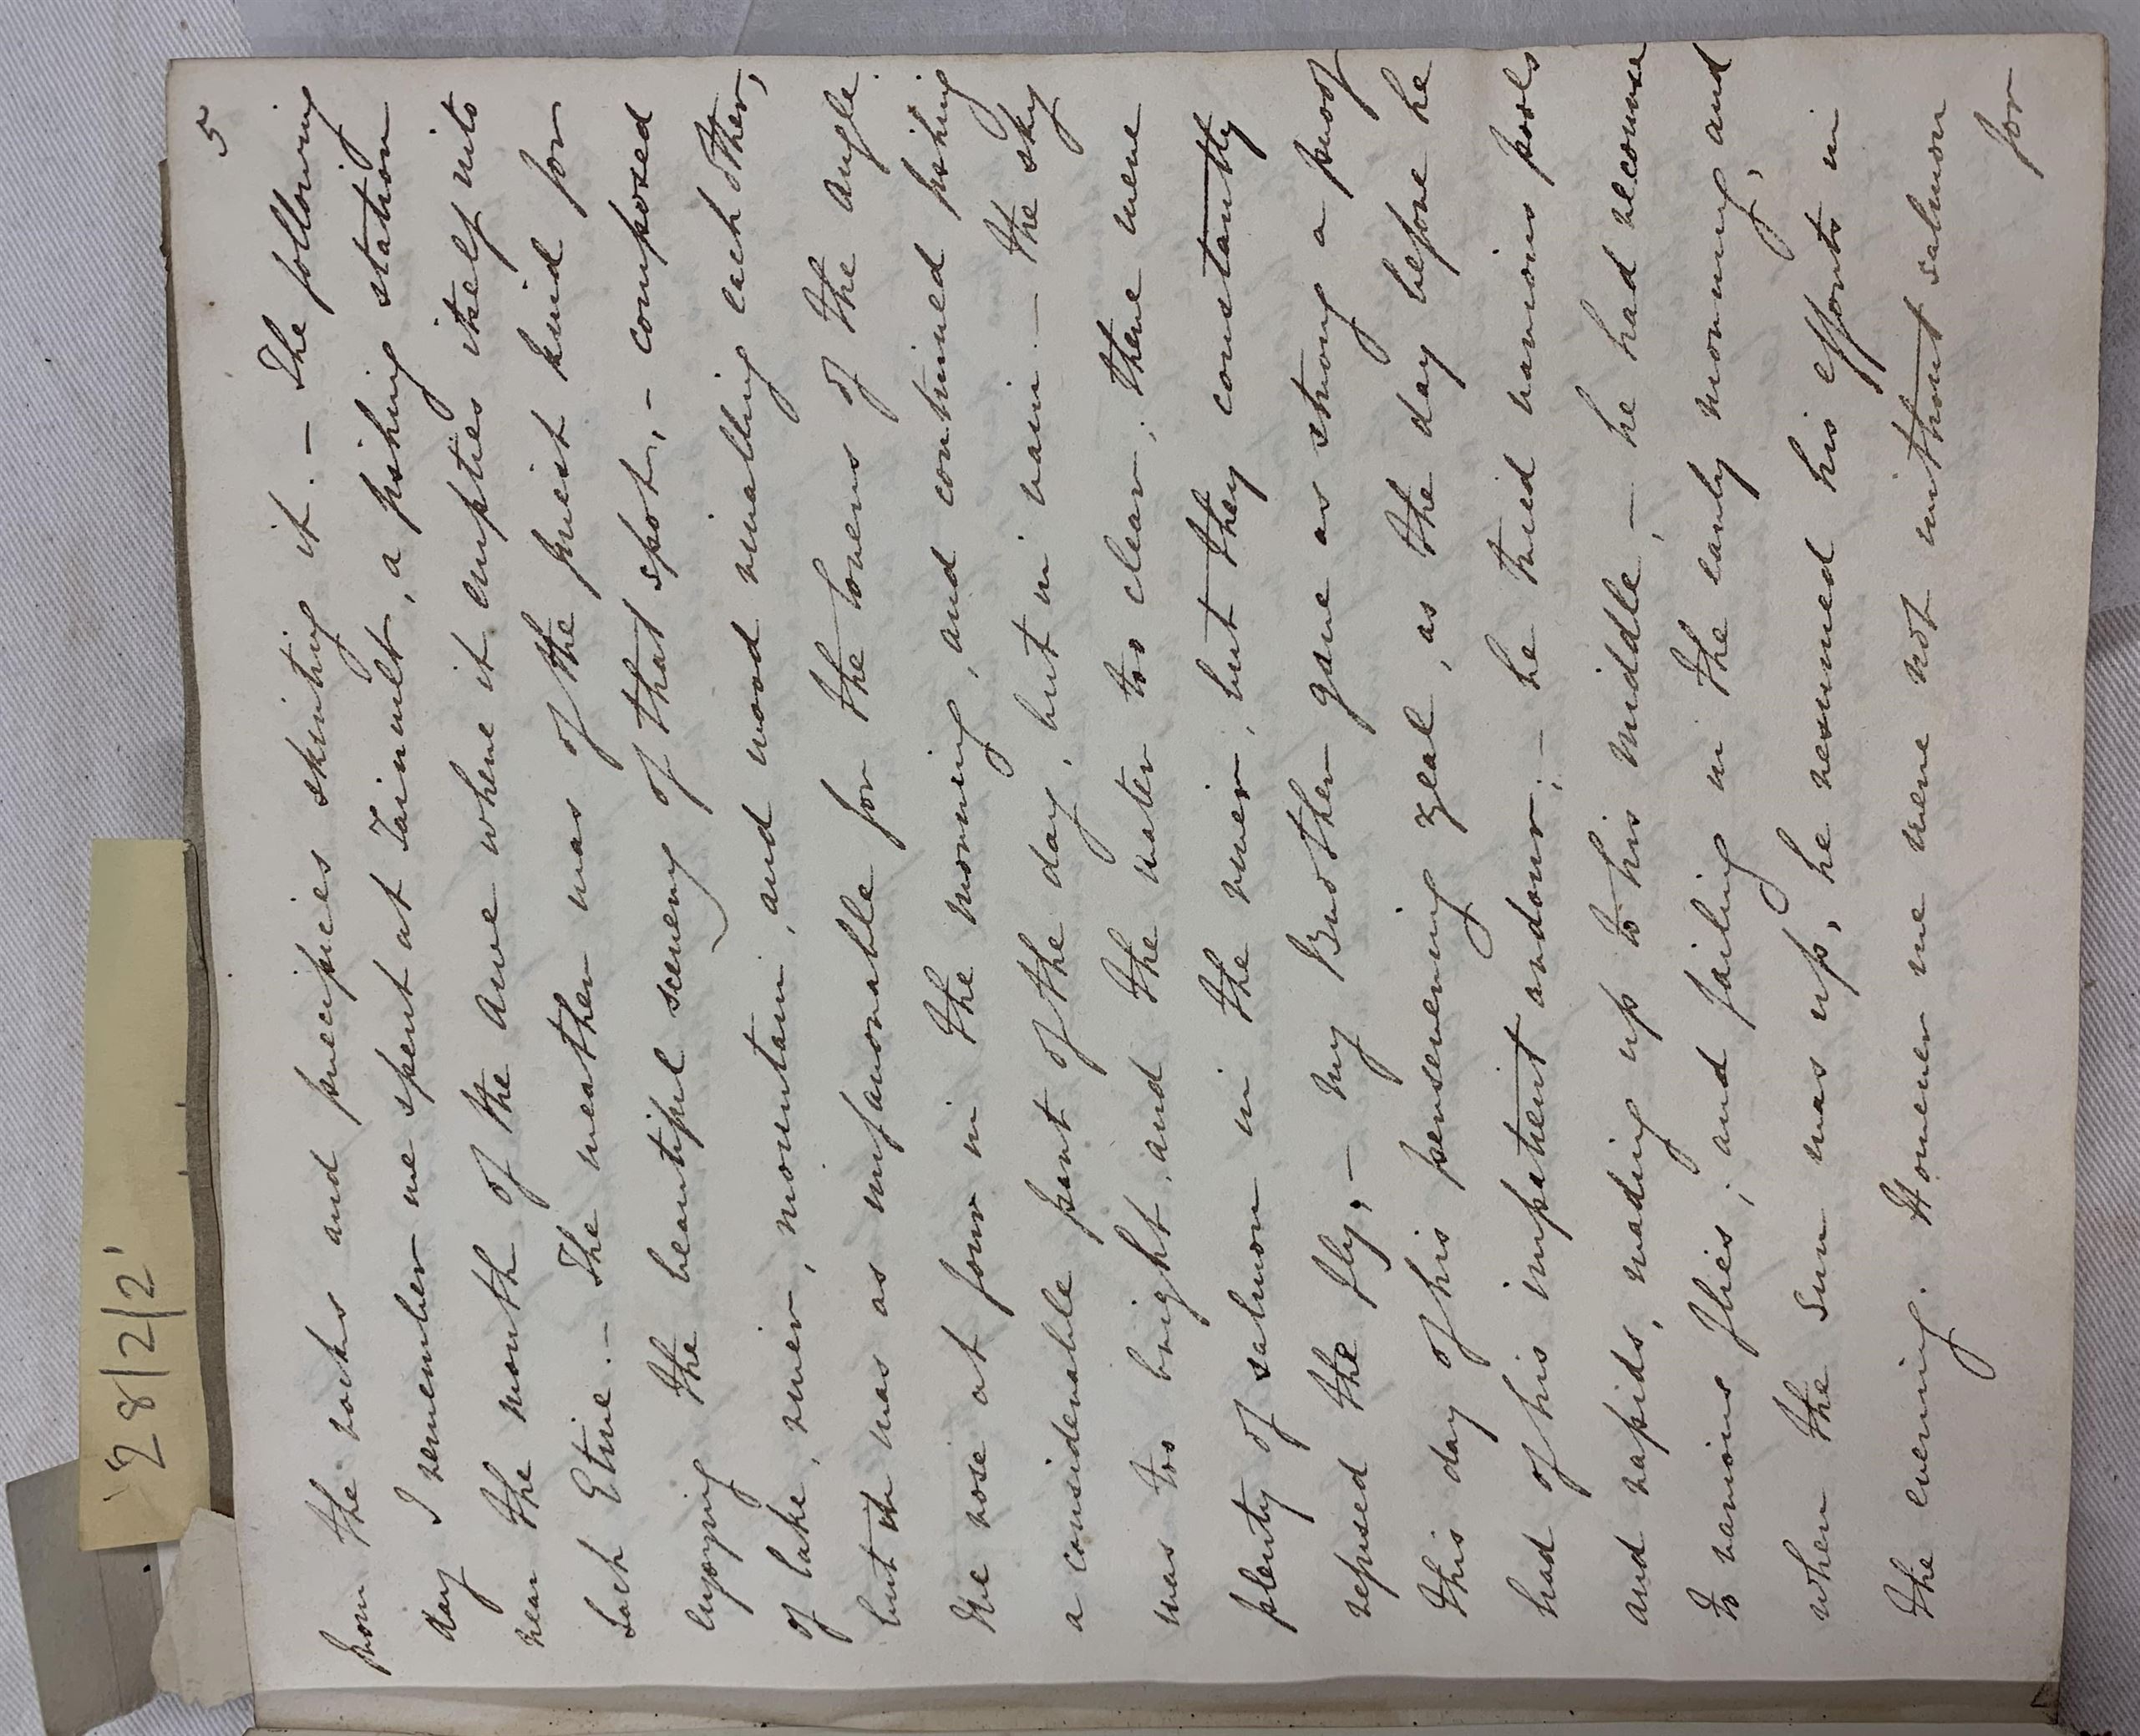 28/2/2'
5
from the rocks and precipices skirting it. – The following
day I remember we spent at Tainult, a fishing station
near the mouth of the Awe where it empties itself into
Loch Etive. – The weather was of the finest kind for
enjoying the beautiful scenery of that spot, – composed
of lake, river, mountain, and wood rivalling each other,
but it was as unfavorable for the lovers of the angle.
We rose at four in the morning, and continued fishing
a considerable part of the day, but in vain – the sky
was too bright, and the water too clear; there were
plenty of salmon in the river, but they constantly
refused the fly; – my Brother gave as strong a proof
this day of his persevering zeal, as the day before he
had of his impatient ardour; – he tried various pools
and rapids, wading up to his middle, – he had recourse
to various flies; and failing in the early morning, and
when the sun was up, he resumed his efforts in
the evening. However we were not without salmon
for